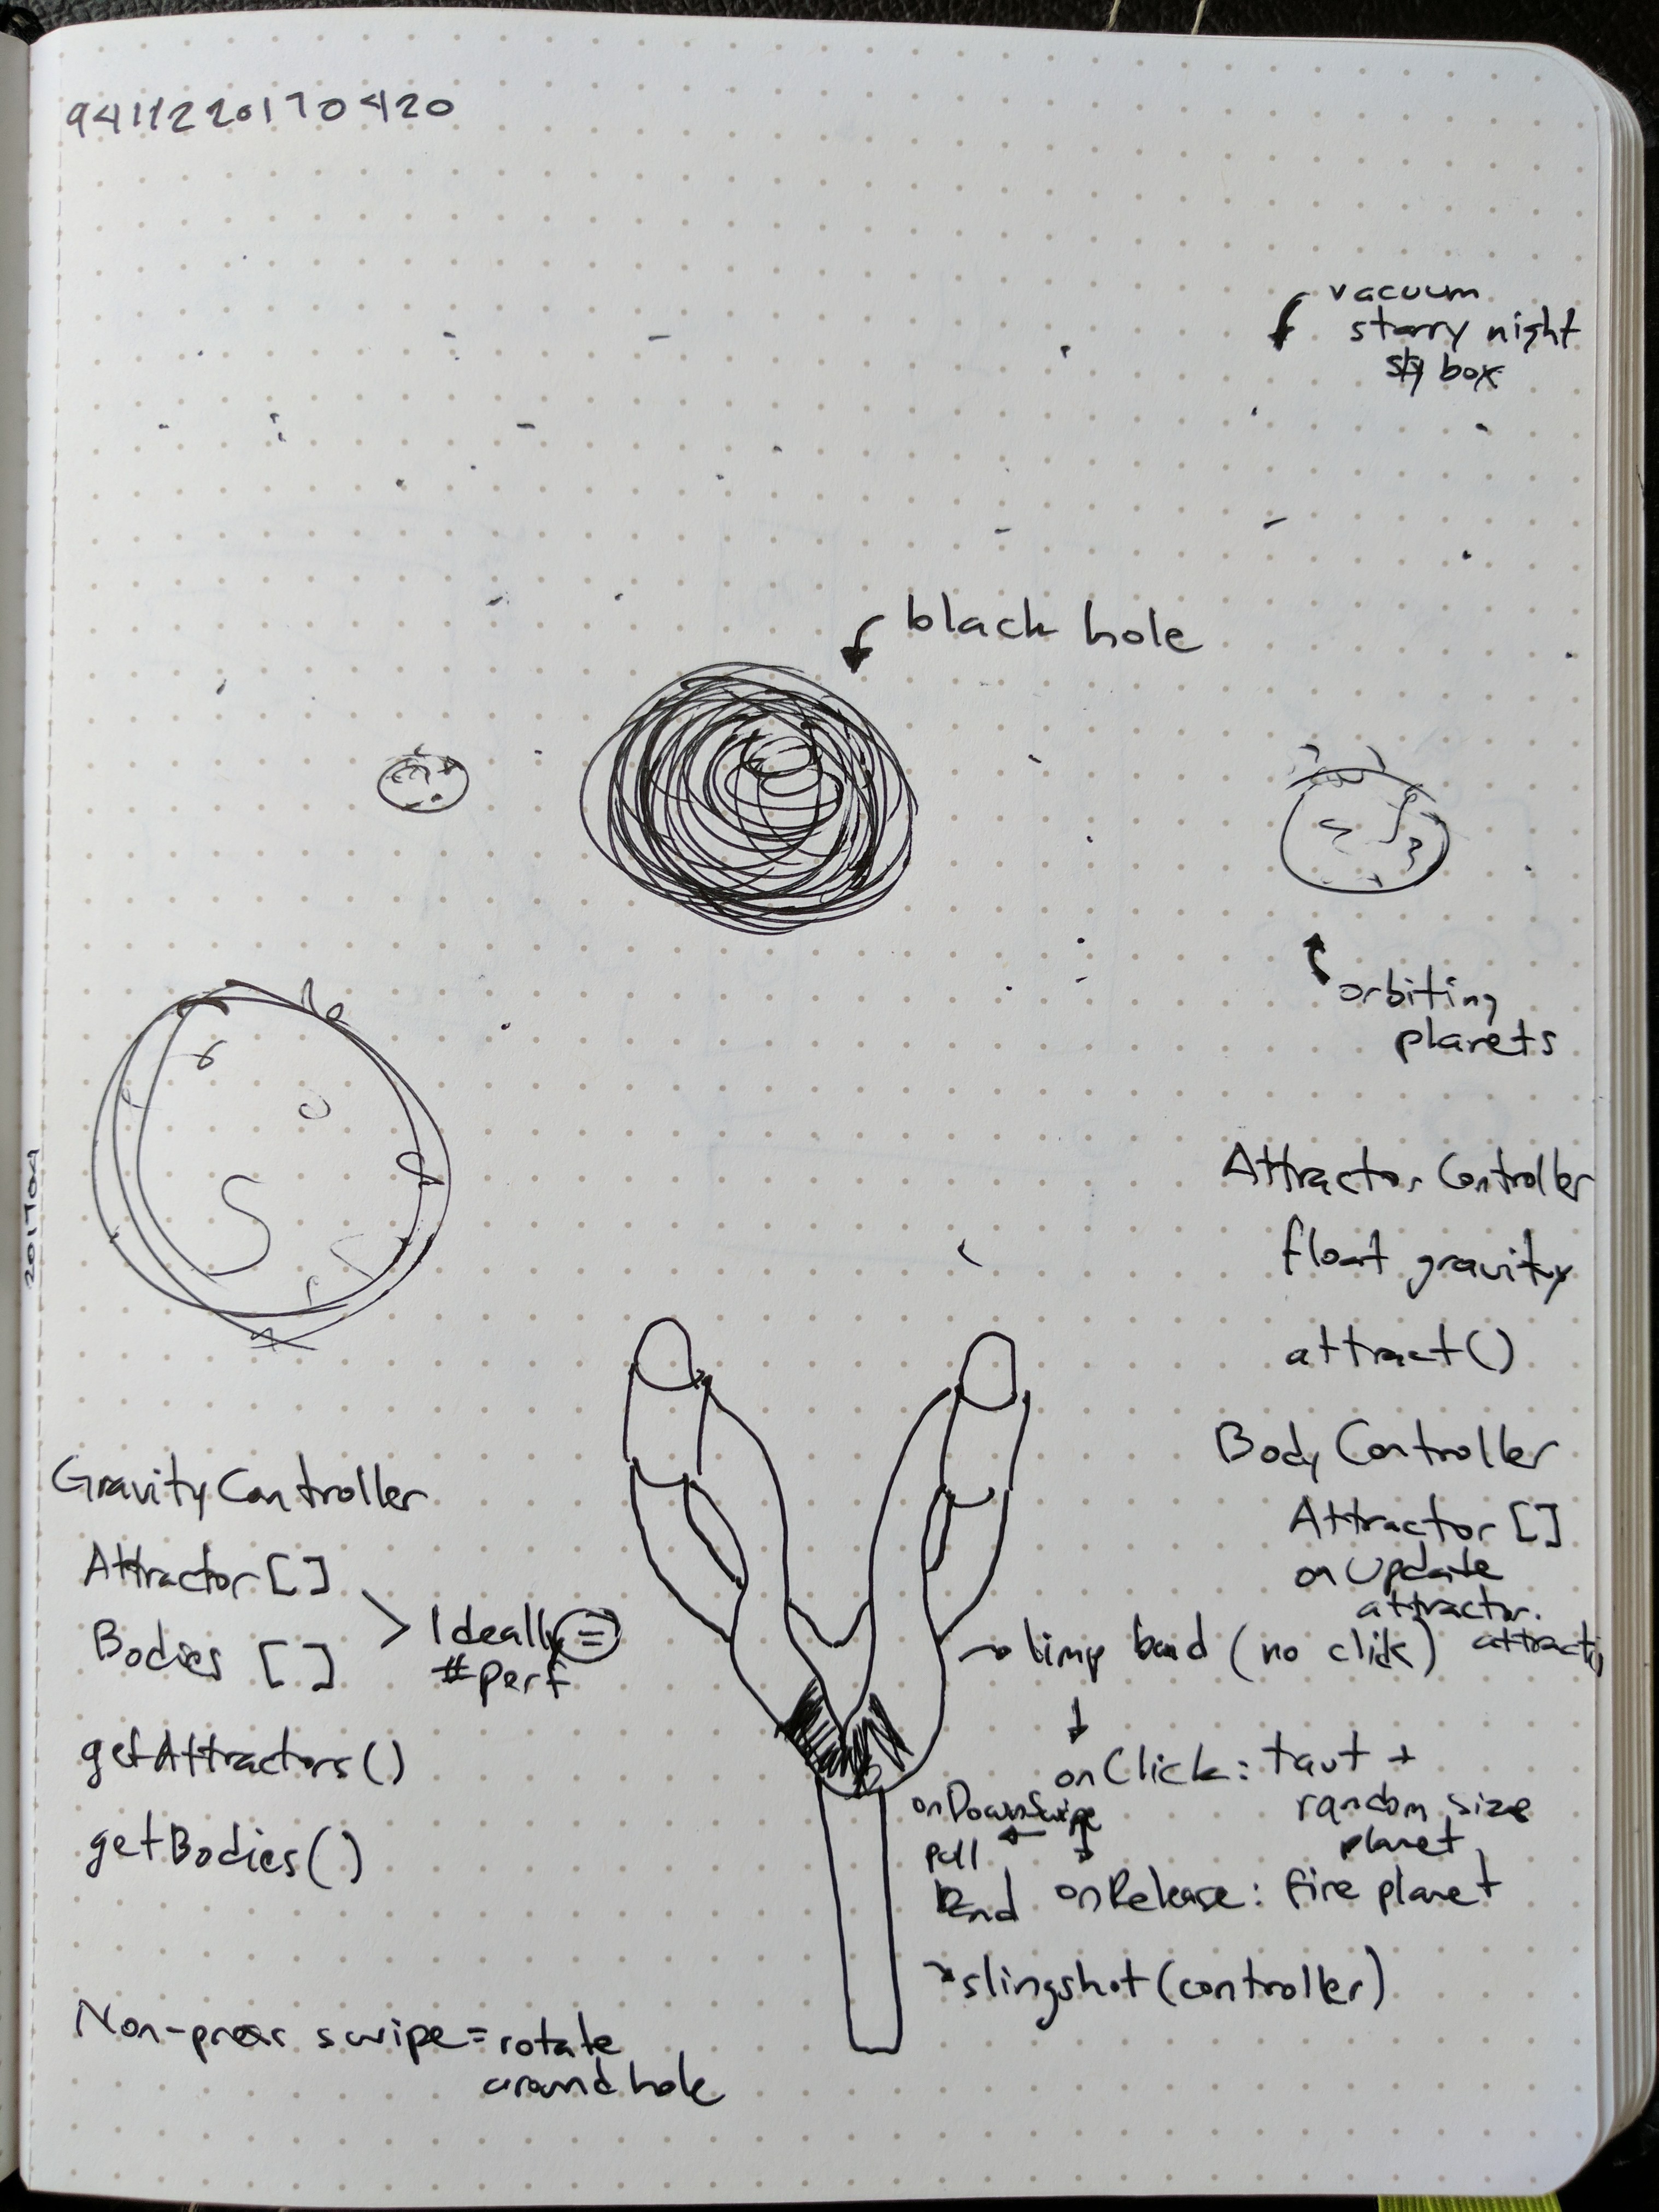 9411220170420
vacuum
starry night
sky box
black hole
orbiting
planets
201704
Attractor Controller
float gravity
attract()
Body Controller
Attractor []
on Update
attractor.
attract()
GravityController
Attractor []
Bodies []
Ideally =
#perf
getAttractors()
getBodies()
limp band (no click)
onClick: taut +
random size
planet
onDownSwipe
pull
Band
onRelease: fire planet
slingshot (controller)
Non-press swipe = rotate
around hole